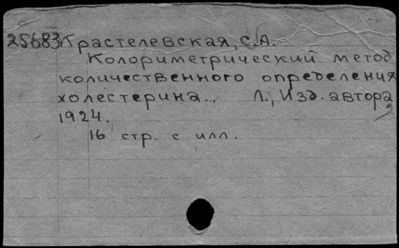 25683 Крастелевская, С.А.
Колориметрический метод
количественного определения
холестерина.. Л., Изд. автора,
1924.
16 стр. с илл.